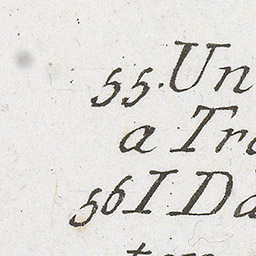 55. Un
a Tra
56 I Da